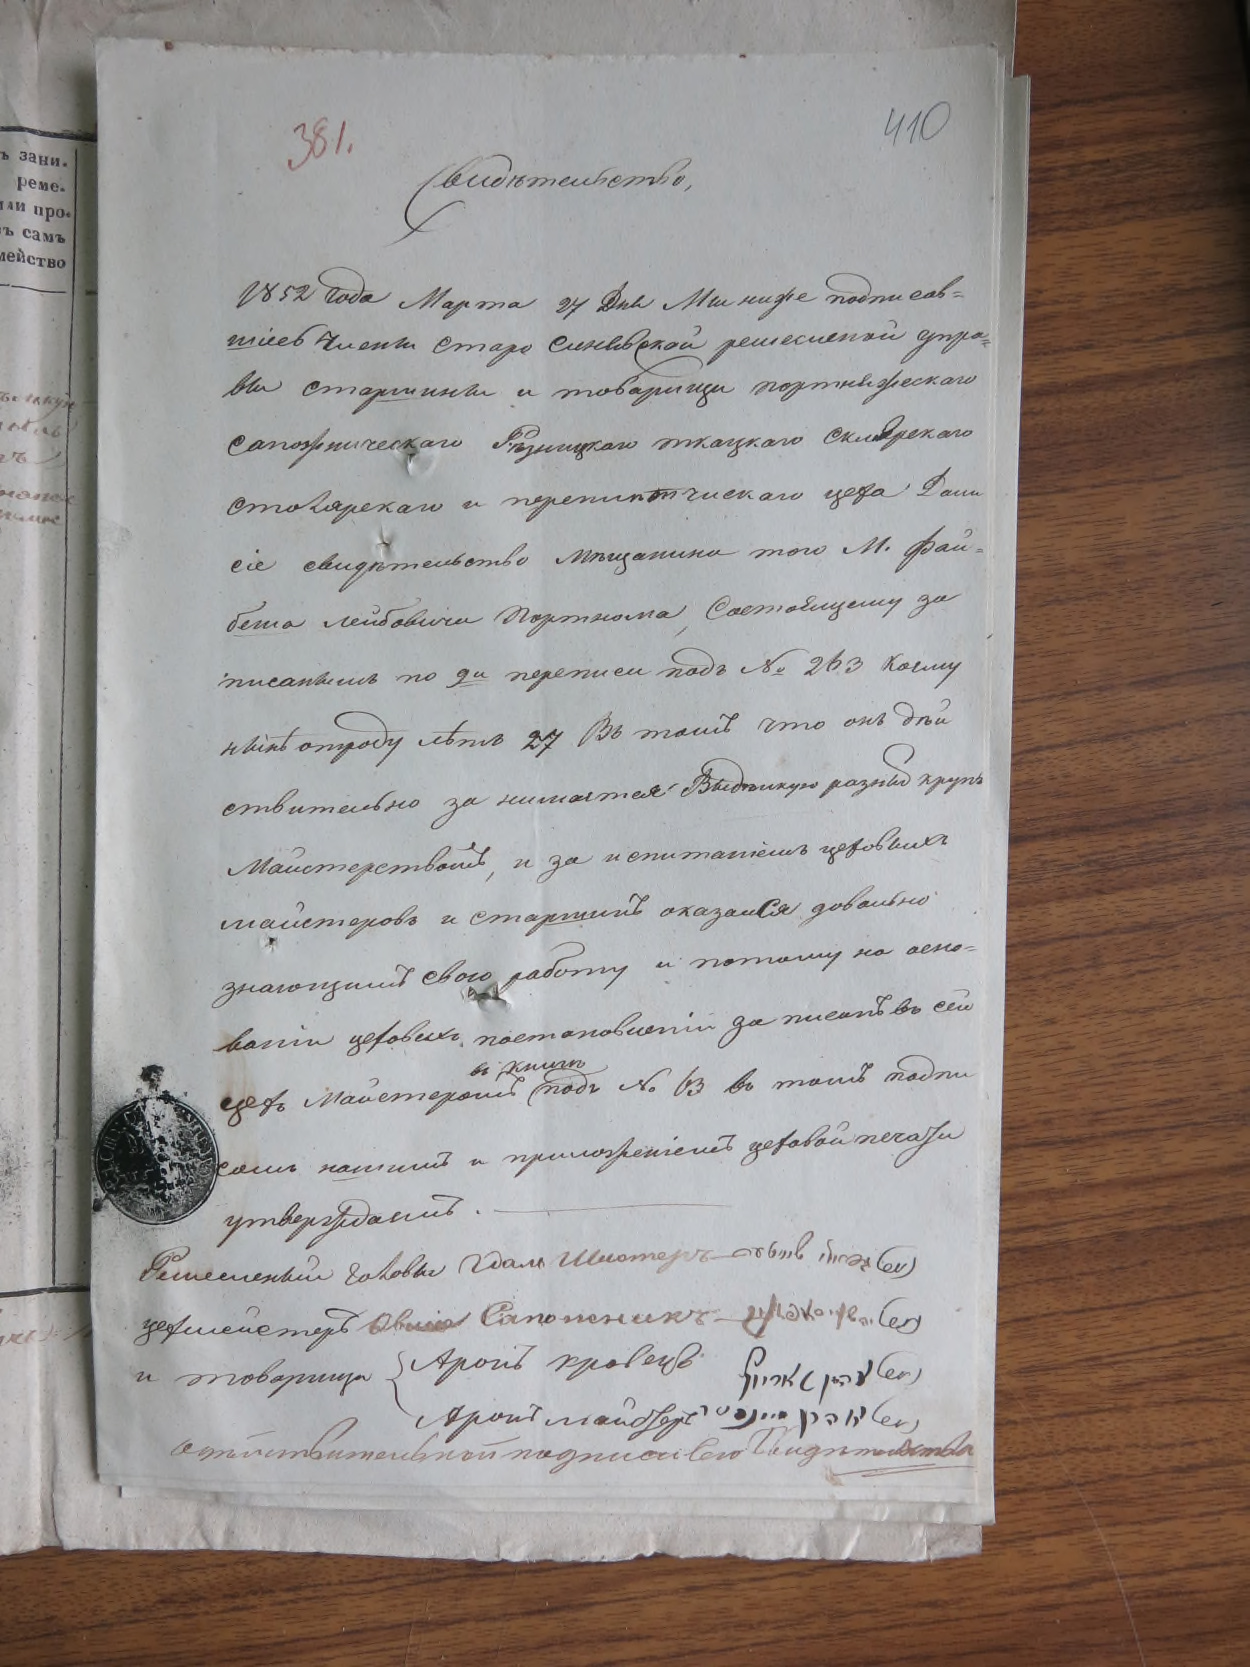 ъ зани-
реме-
или про-
ъ самъ
мейство
381.
410
Свидѣтельство,
1852 года Марта 27 дня Мы ниже подписав=
шіеся Члены Старо Синявской ремесленой упра=
вы старшины и товарищи портняжескаго
сапожническаго Рѣзницкаго ткацкаго склярскаго
столярскаго и цеха Дали
сіе свидѣтельство Мѣщанину того М. Фай=
беша Лейбовича Портнома, Состоящему за
писаннымъ по 9й переписи подъ № 263 коему
нынѣ отроду лѣтъ 27 Въ томъ что онъ дѣй
ствительно за нимается Выдѣлкую разныхъ крупъ
Майстерствомъ, и за испитаніемъ цеховыхъ
майстеровъ и старшинъ оказался довольно
знающимъ свою работу и потому на осно=
ваніи цеховыхъ постановленій за писанъ въ сей
цехъ Майстеромъ въ книгѣ подъ № 63 въ томъ подпи
сомъ нашимъ и приложеніемъ цеховой печати
утверждаемъ.
Ремесленый голова Шустеръ
цехмейстеръ Сапожникъ
и товарищи Аронъ Кравецъ
Аронъ
дѣйствительной подписи сего Свидѣтельства